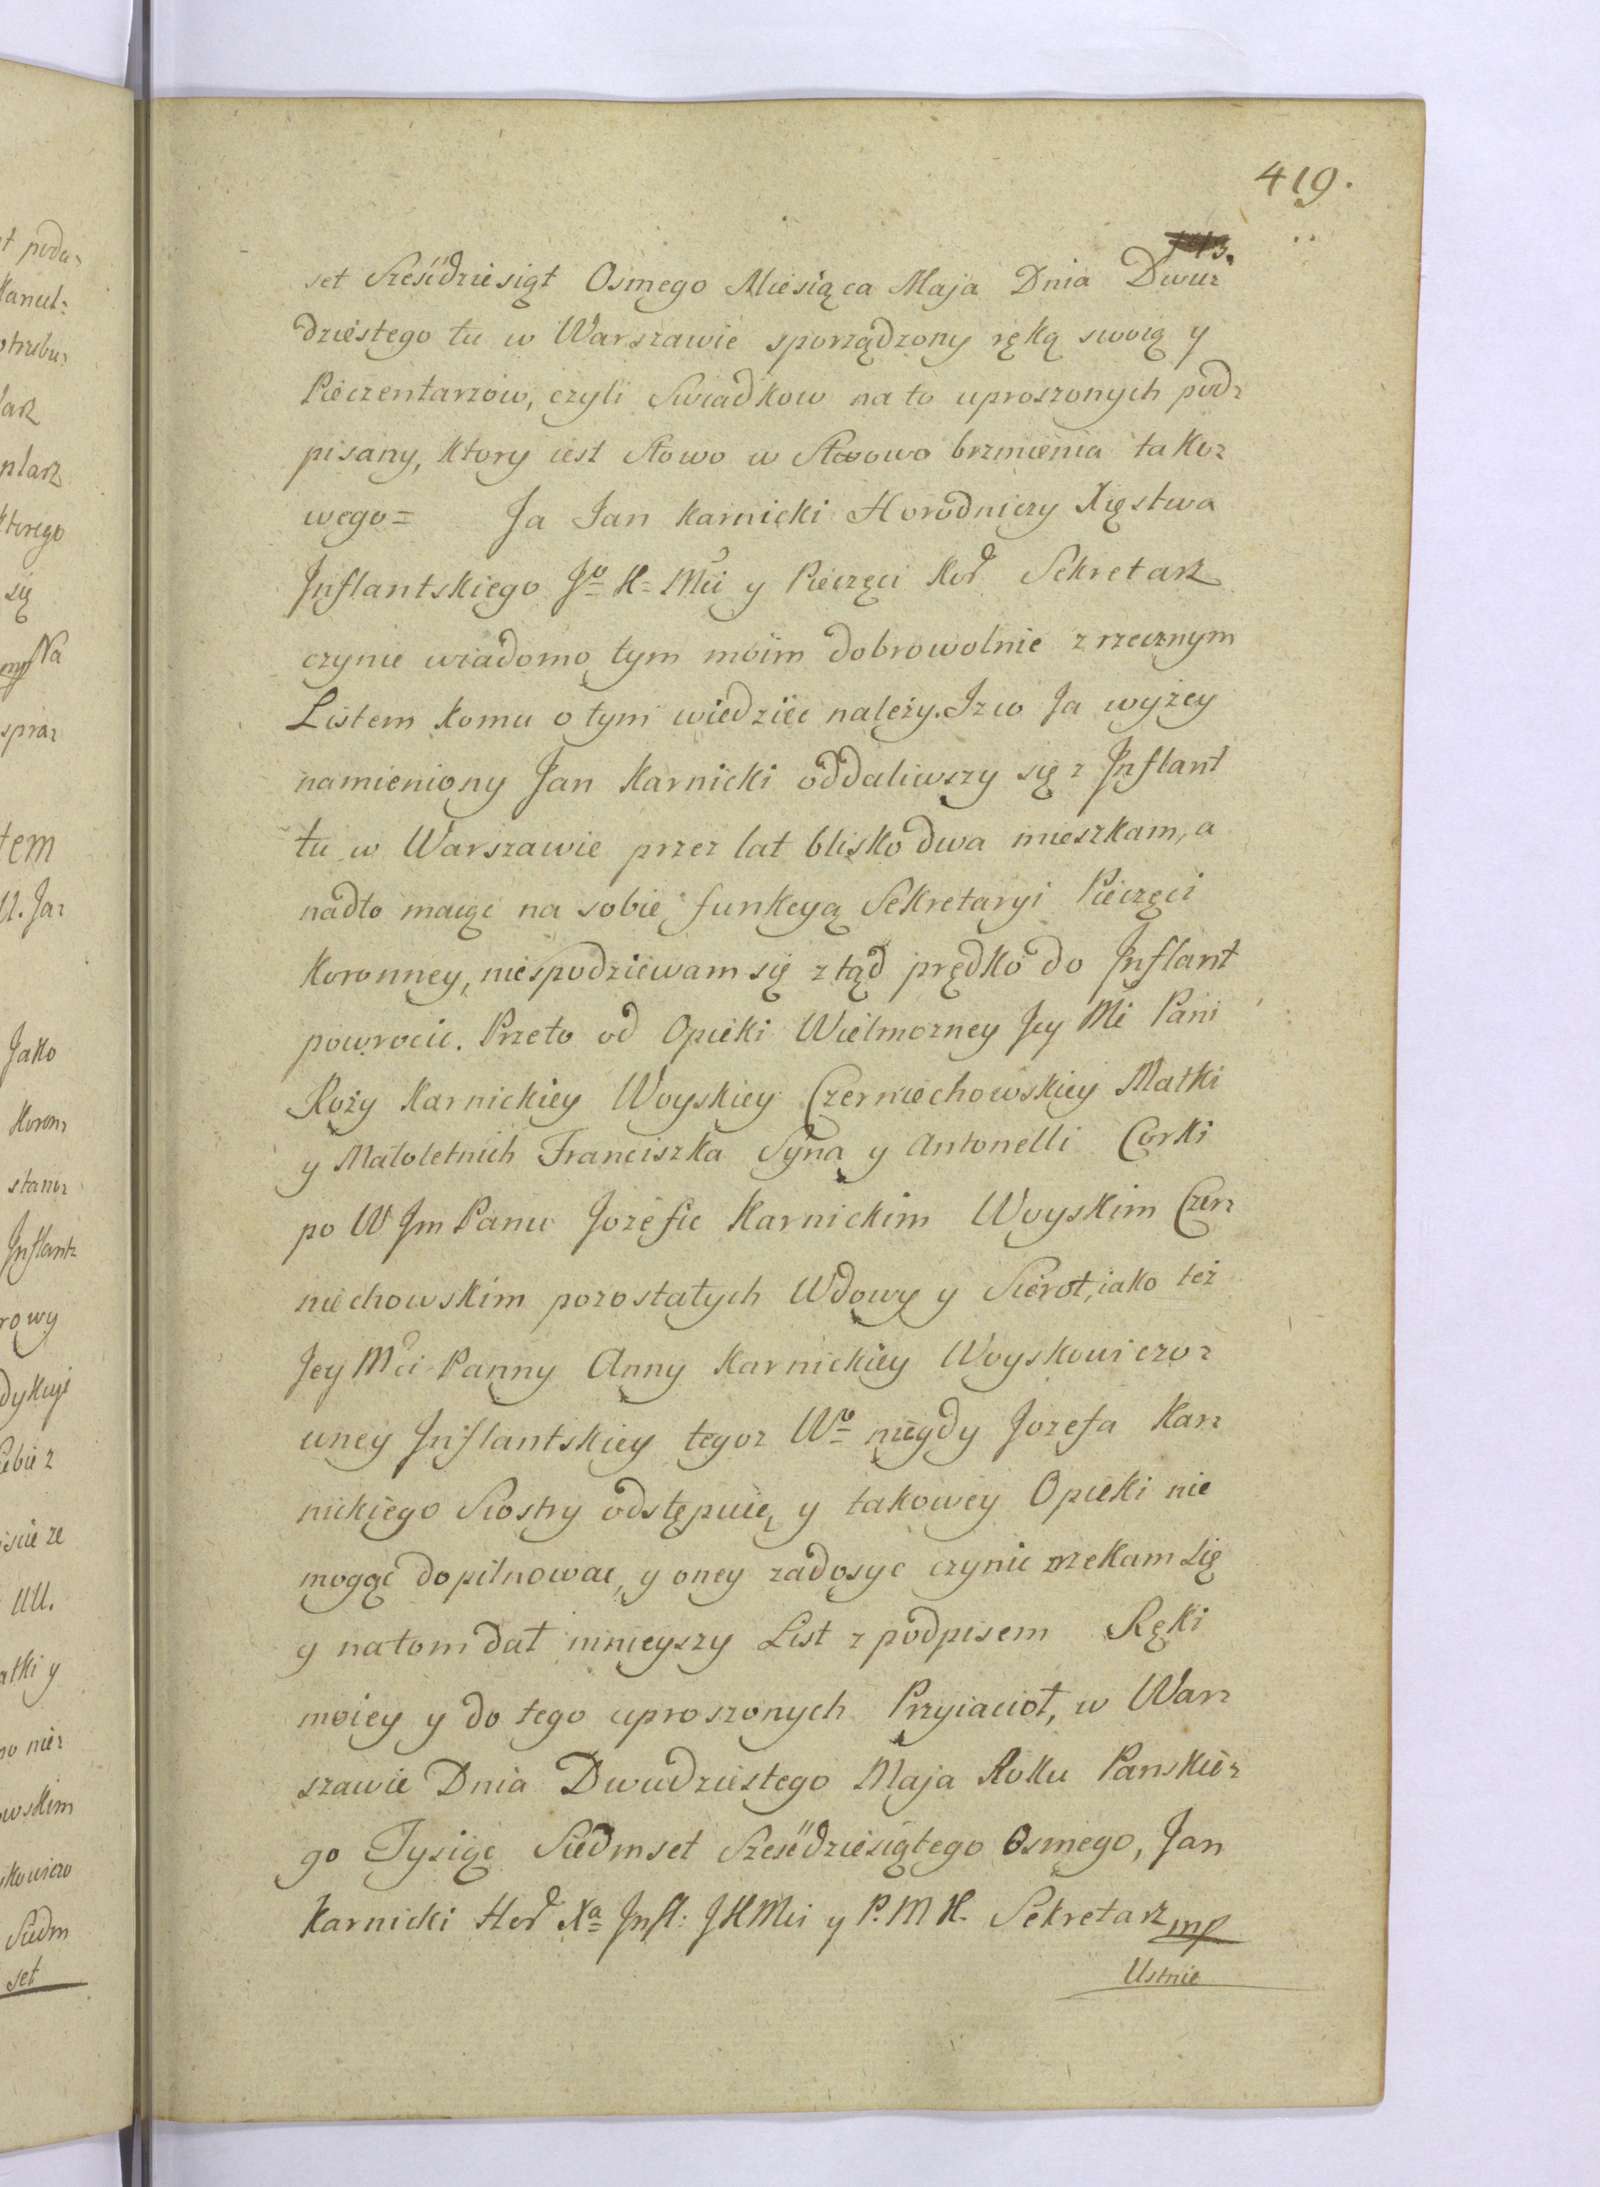 419.
set Sześćdziesiąt Osmego Miesiąca Maja Dnia Dwu=
dziestego tu w Warszawie sporządzony ręką swoią y
Pieczentarzow, czyli Swiadkow na to uproszonych pod=
pisany, ktory iest Słowo w Słowo brzmienia tako=
wego= Ja Jan Karnicki Horodniczy Xięstwa
Inflantskiego Jo K= Mći y Pieczęci Kor Sekretarz
czynie wiadomo tym moim dobrowolnie zrzecznym
Listem komu o tym wiedziec nalezy. Iz w Ja wyżey
namieniony Jan Karnicki oddaliwszy się z Inflant
tu w Warszawie przez lat blisko dwa mieszkam, a
nadto maiąc na sobie funkcyą Sekretaryi Pieczęci
Koronney, niespodziewam się ztąd prędko do Inflant
powrocic. Przeto od Opieki Wielmozney Jey Mci Pani
Rozy Karnickiey Woyskiey Czerniechowskiey Matki
y Małoletnich Franciszka Syna y Antonelli Corki
po W Jm Panu Jozefie Karnickim Woyskim Czer=
niechowskim pozostałych Wdowy y Sierot, iako też
Jey Mći Panny Anny Karnickiey Woyskowiczo=
wney Inflantskiey tegoz Wo niegdy Jozefa Kar=
nickiego Siostry odstępuię, y takowey Opieki nie
mogąc dopilnowac, y oney zadosyc czynic zrzekam się
y na tom dał ninieyszy List z podpisem Ręki
moiey y do tego uproszonych Przyiacioł, w War=
szawie Dnia Dwudziestego Maja Roku Panskie=
go Tysiąc Siedmset Sześćdziesiątego Osmego, Jan
Karnicki Hor Xa Infl: JKMci y P. M K. Sekretarz mp
Ustnie